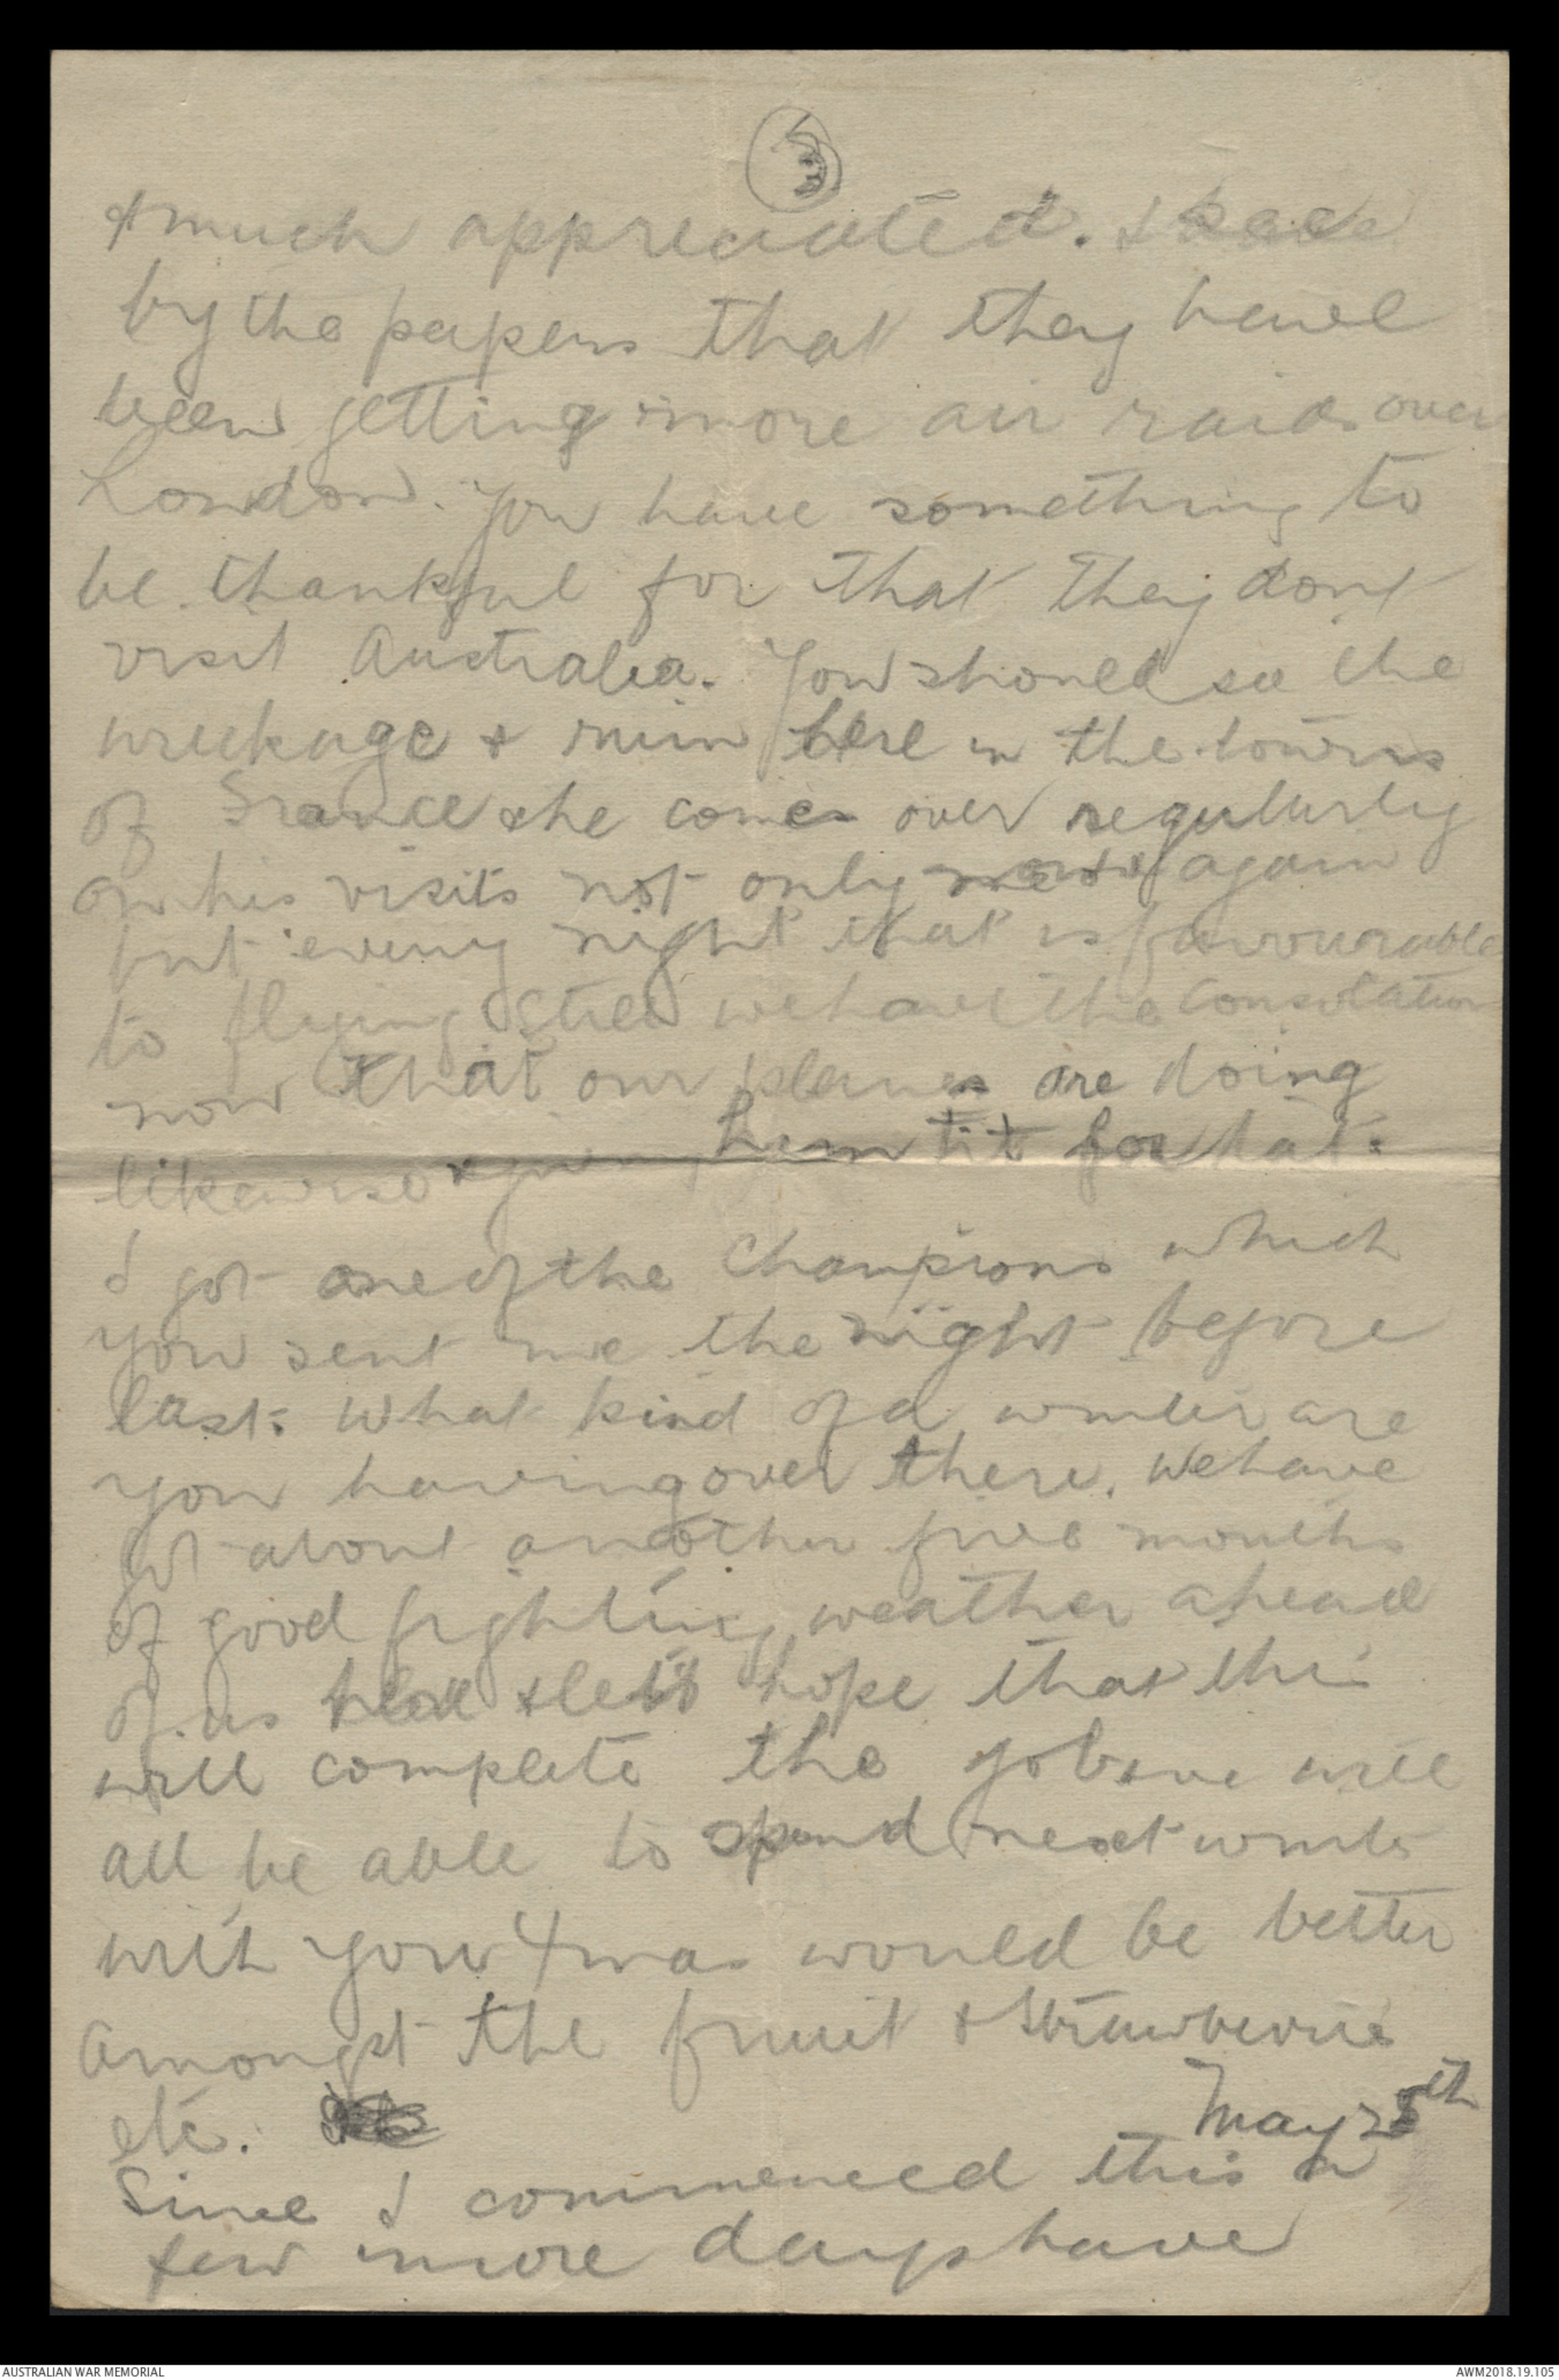 & much appreciated. I see
by the papers that they have
been getting more air raids over
London. You have something to
be thankful for that they dont
visit Australia. You should see the
wreckage & ruin here in the towns
of France & he comes over regularly
on his visits not only now & again
but every night that is favourable
to flying Still we have the consolation
now that our planes are doing
likewise & giving him tit for tat.
I got one of the Champions which
you sent me the night before
last. What kind of a winter are
you having over there. We have
got about another five months
of good fighting weather ahead
of us & lets hope that this
will complete the job & we will
all be able to spend next winter
with you Xmas would be better
amongst the fruit & Strawberries
etc.
May 25th
Since I commenced this a
few more days have
AUSTRALIAN WAR MEMORIAL
AWM2018.19.105